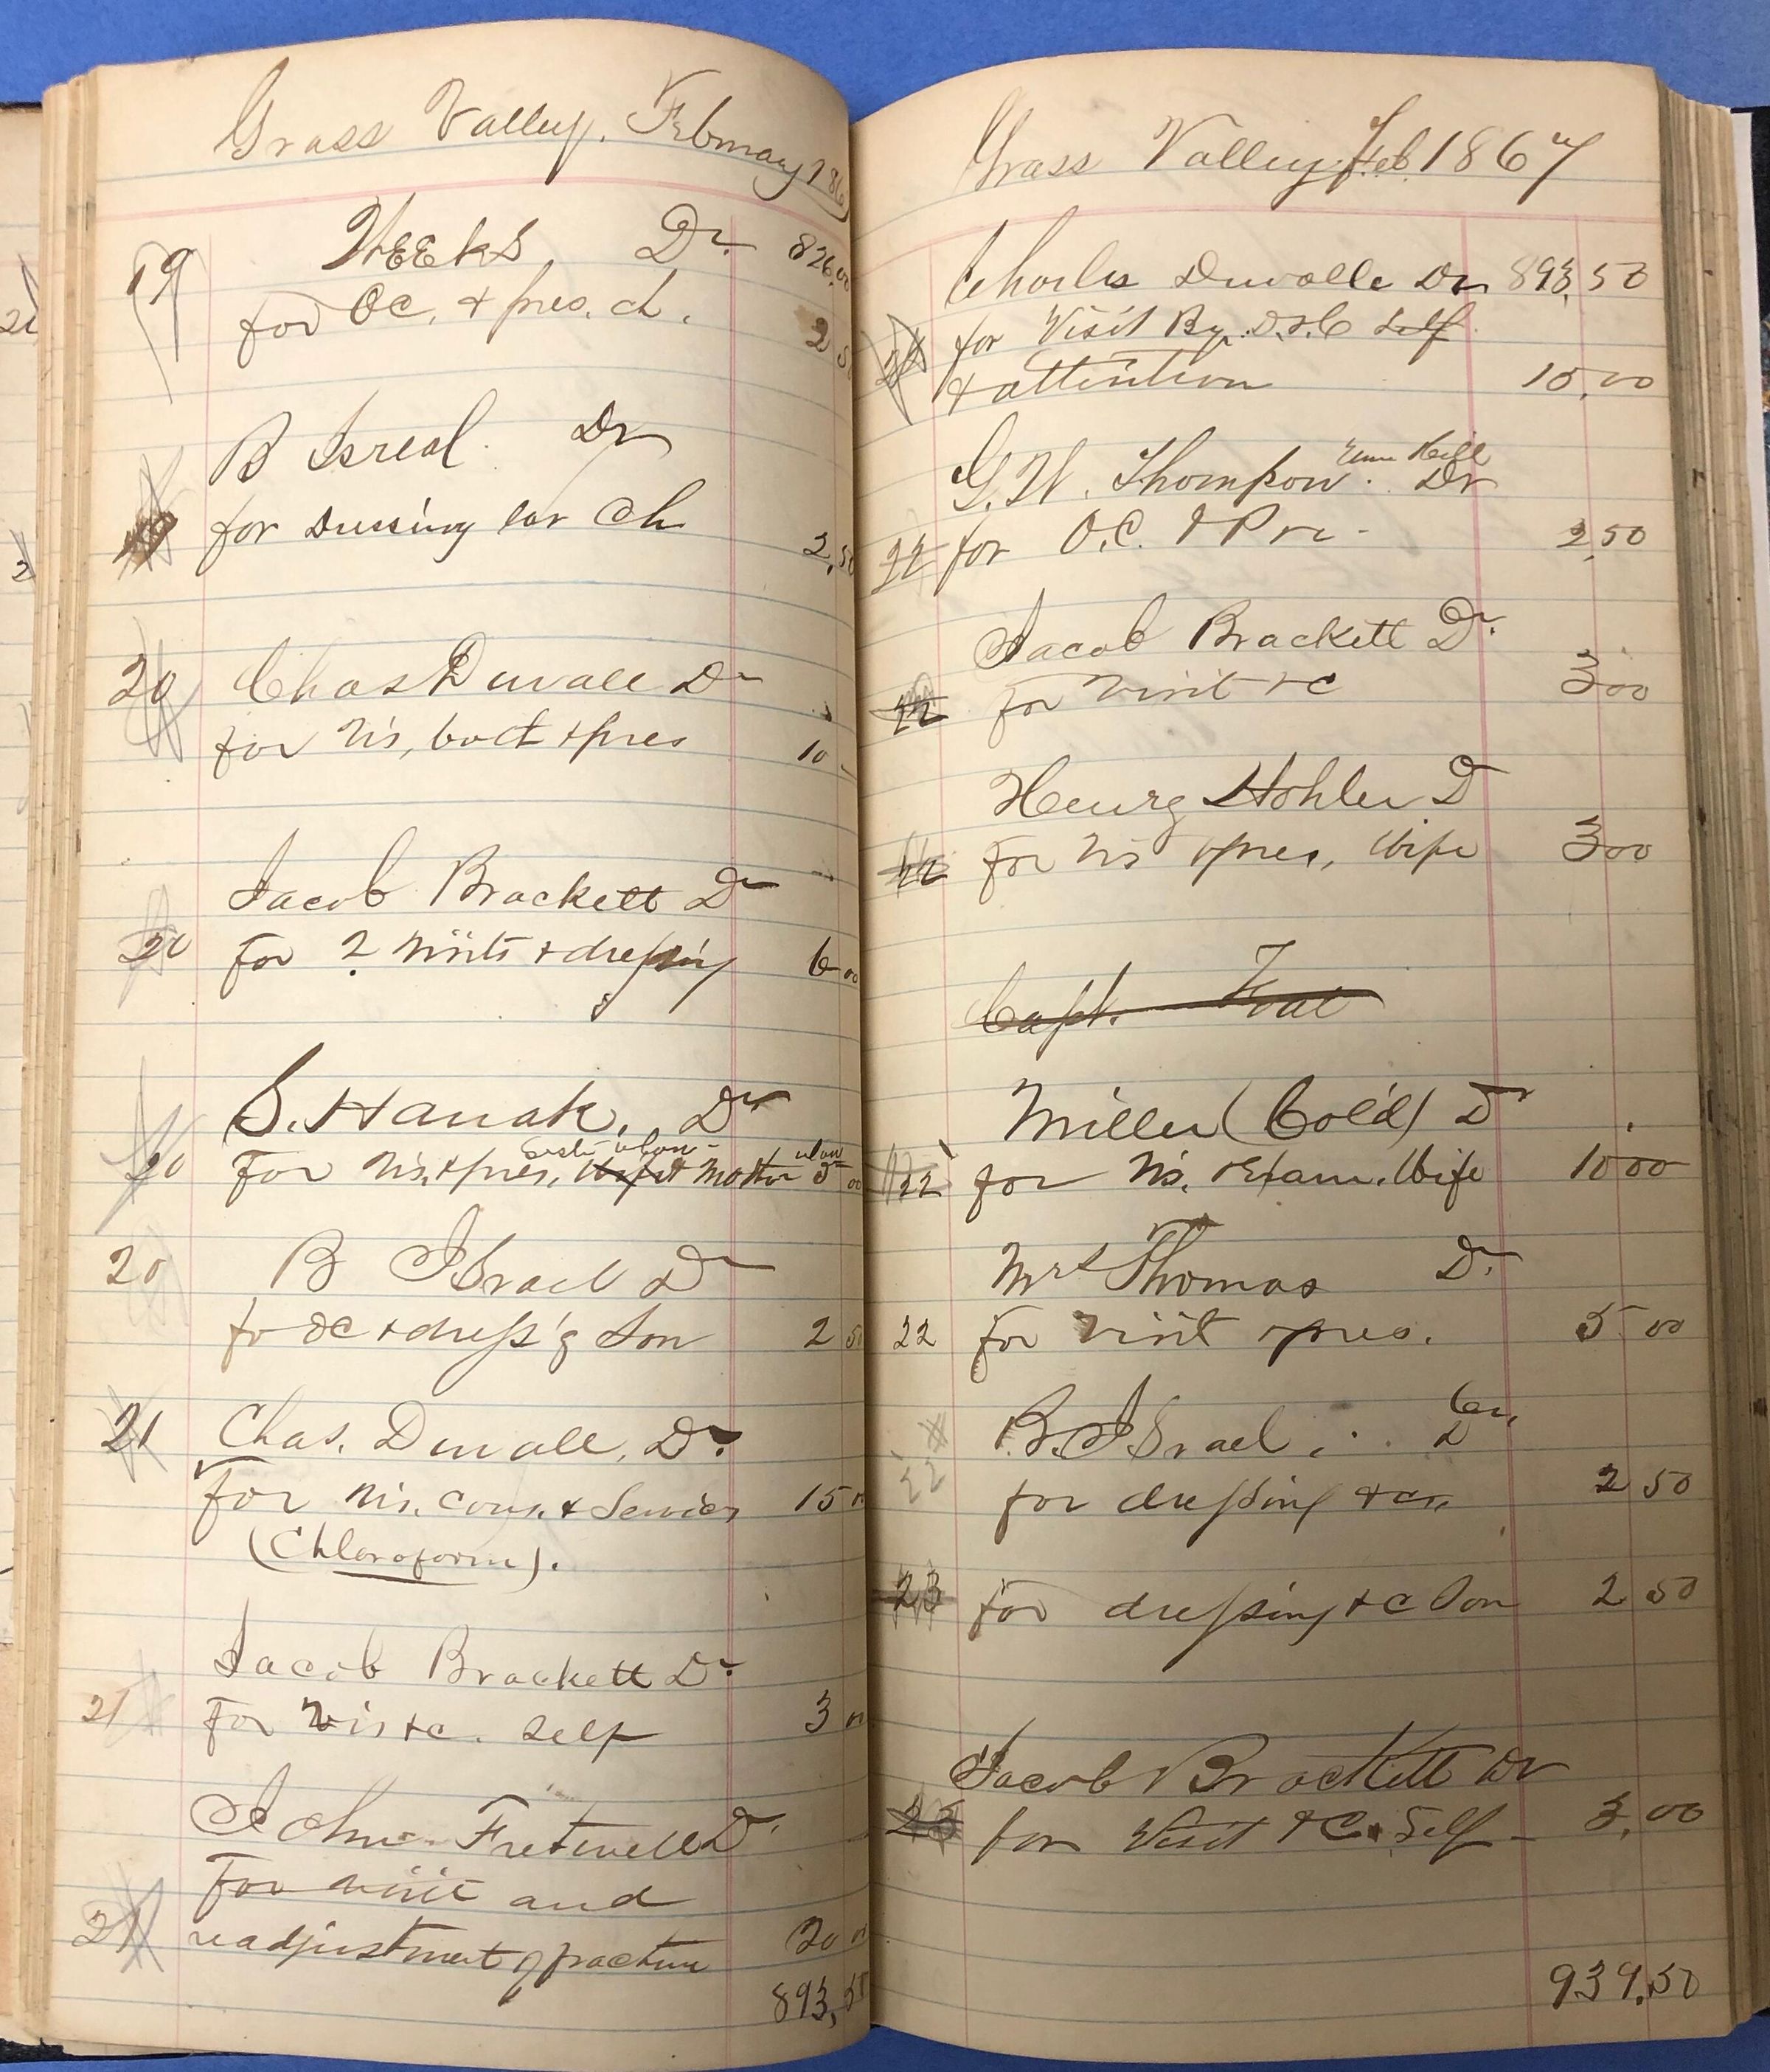 Grass Valley, February 186
Weeks Dr. 826,00
19 for OC, + pres. ch. 2 5
B Isreal Dr
for Dressing ear Ch 2,50
20 Chas Duvall Dr
for Vis, + pres 10 -
Jacob Brackett Dr
20 for 2 visits + dressing 6 00
S. Hanak. Dr
20 For Vis. + pres, Mother 5 00
B Israel Dr
20 fo OC + dress'g Son 2 50
21 Chas. Duvall, Dr.
For Vis. Cons. + Services 15 0
(Chloroform).
Jacob Brackett Dr.
21 For Vis +c. Self 3 00
John Fretwell Dr
For visit and
21 readjustment of fracture 20 00
893,50
Grass Valley, Feb 1867
Charles Duvalle Dr 893,50
for Visit By Self
+ attention 10,00
G. W. Thompson. Dr
22 for O.C. + Pre - 2,50
Jacob Brackett Dr.
22 for visit +c 3 00
Henry Hohler D
22 for Vis + pres, Wife 3 00
Capt.
Miller (Col'd) Dr
22 for Vis. + Exam. Wife 10 00
Mrs Thomas Dr.
22 For visit + pres. 5 00
B. Israel Dr
22 for dressing + 2 50
23 for dressing +c Son 2 50
Jacob Brackett Dr
23 for Visit +C. Self - 3,00
939.50